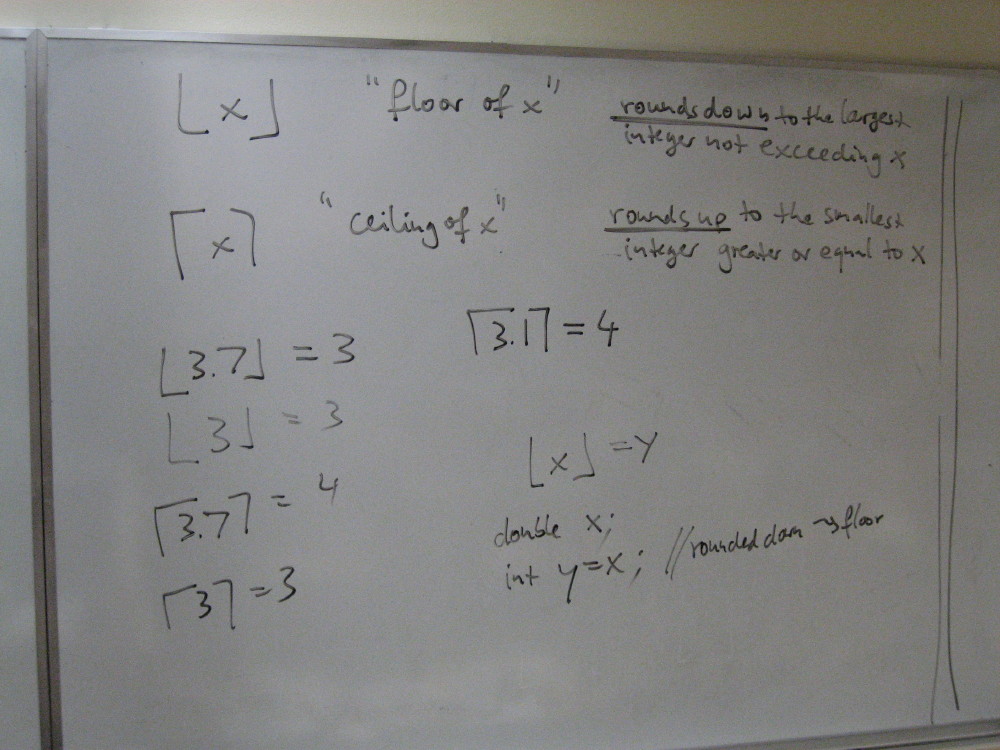 ⌊x⌋ "floor of x" rounds down to the largest
integer not exceeding x
⌈x⌉ "ceiling of x" rounds up to the smallest
integer greater or equal to x
⌈3.1⌉ = 4
⌊3.7⌋ = 3
⌊3⌋ = 3
⌈3.7⌉ = 4
⌈3⌉ = 3
⌊x⌋ = y
double x;
int y=x; //rounded down → floor